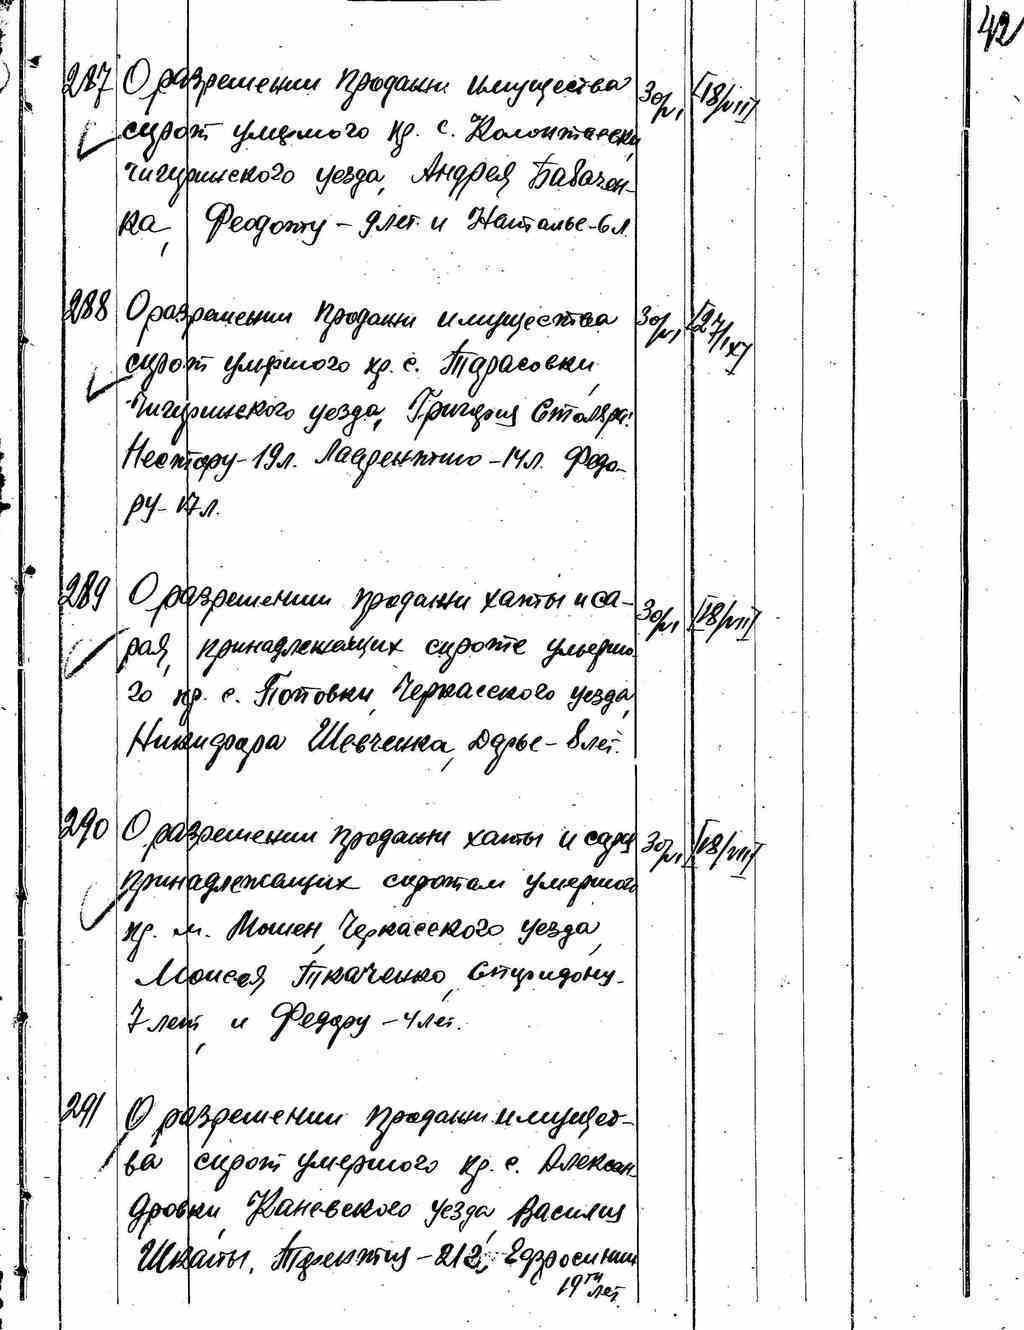 42
287 О разрешении продажи имущества
сирот умершего кр. с. Колонтаевки,
Чигиринского уезда, Андрея Бабачен-
ка, Феодоту - 9 лет. и Наталье - 6 л.
Зор, [18/VII]
288 О разрешении продажи имущества
сирот умершого кр. с. Тарасовки,
Чигиринского уезда, Григория Столяра:
Нестору - 19 л. Лаврентию - 14 л. Федо-
ру - 17 л.
[27/IX]
289 О разрешении продажи хаты и са-
рая, принадлежащих сироте умершо-
го кр. с. Поповки, Черкасского уезда,
Никифора Шевченка, Дарье - 8 лет.
[18/VII]
290 О разрешении продажи хаты и сарая
принадлежащих сиротам умершого
кр. м. Мошен, Черкасского уезда,
Моисея Ткаченко, Спиридону -
7 лет, и Федору - 4 лет.
[18/VII]
291 О разрешении продажи имущест-
ва сирот умершого кр. с. Алексан-
дровки, Каневского уезда, Василия
Шкаты, Терентия - 21 г., Евфросинии
19ти лет.